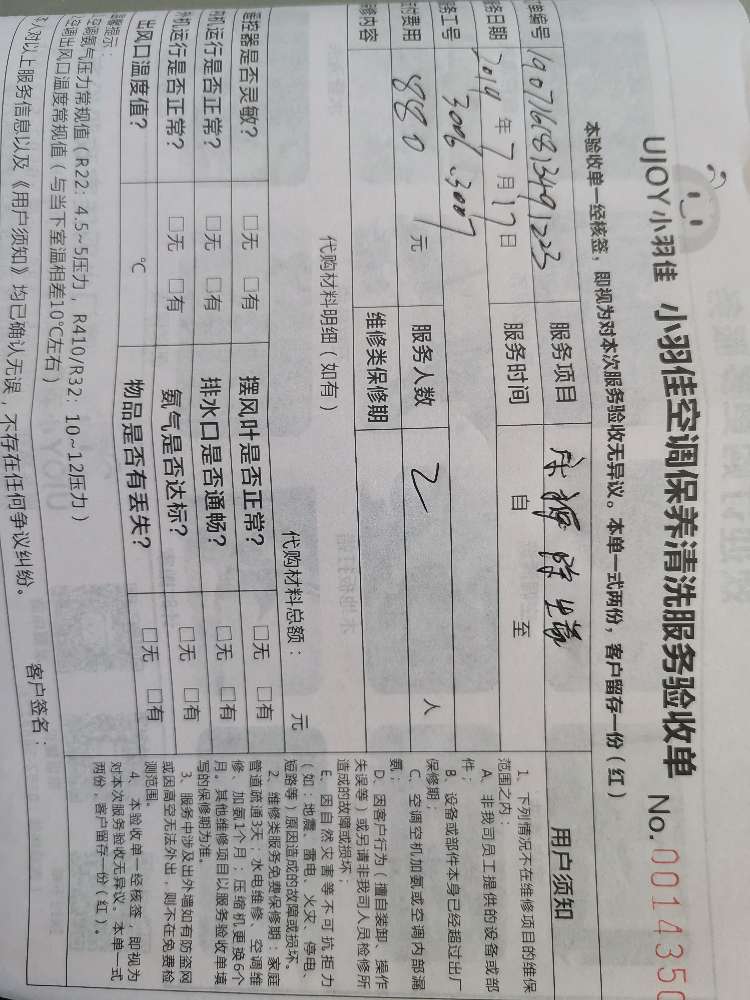 UJOY小羽佳 小羽佳空调保养清洗服务验收单 No.001435
本验收单一经核签，即视为对本次服务验收无异议。本单一式两份，客户留存一份（红）
编号 服务项目
日期 2019年7月17日 服务时间 自 至
工号 3006.3007
费用 880 元 服务人数 2 人
内容 维修类保修期
代购材料明细（如有） 代购材料总额： 元
控器是否灵敏？ □无 □有 摆风叶是否正常？ □无 □有
机运行是否正常？ □无 □有 排水口是否通畅？ □无 □有
机运行是否正常？ □无 □有 氨气是否达标？ □无 □有
出风口温度值？ ℃ 物品是否有丢失？ □无 □有
提示：
空调氨气压力常规值（R22：4.5~5压力，R410/R32：10~12压力）
空调出风口温度常规值（与当下室温相差10℃左右）
对以上服务信息以及《用户须知》均已确认无误，不存在任何争议纠纷。 客户签名：
用户须知
1、下列情况不在维修项目的维保
范围之内：
A、非我司员工提供的设备或部
件；
B、设备或部件本身已经超过出厂
保修期；
C、空调空机加氨或空调内部漏
氨；
D、因客户行为（擅自装卸、操作
失误等）或另请非我司人员检修所
造成的故障或损坏；
E、因自然灾害等不可抗拒力
（如：地震、雷电、火灾、停电、
短路等）原因造成的故障或损坏。
2、维修类服务免费保修期：家庭
管道疏通3天；水电维修、空调维
修、加氨1个月；压缩机更换6个
月。其他维修项目以服务验收单填
写的保修期为准。
3、服务中涉及出外墙如有防盗网
或因高空无法外出，则不在免费检
测范围。
4、本验收单一经核签，即视为
对本次服务验收无异议。本单一式
两份，客户留存一份（红）。